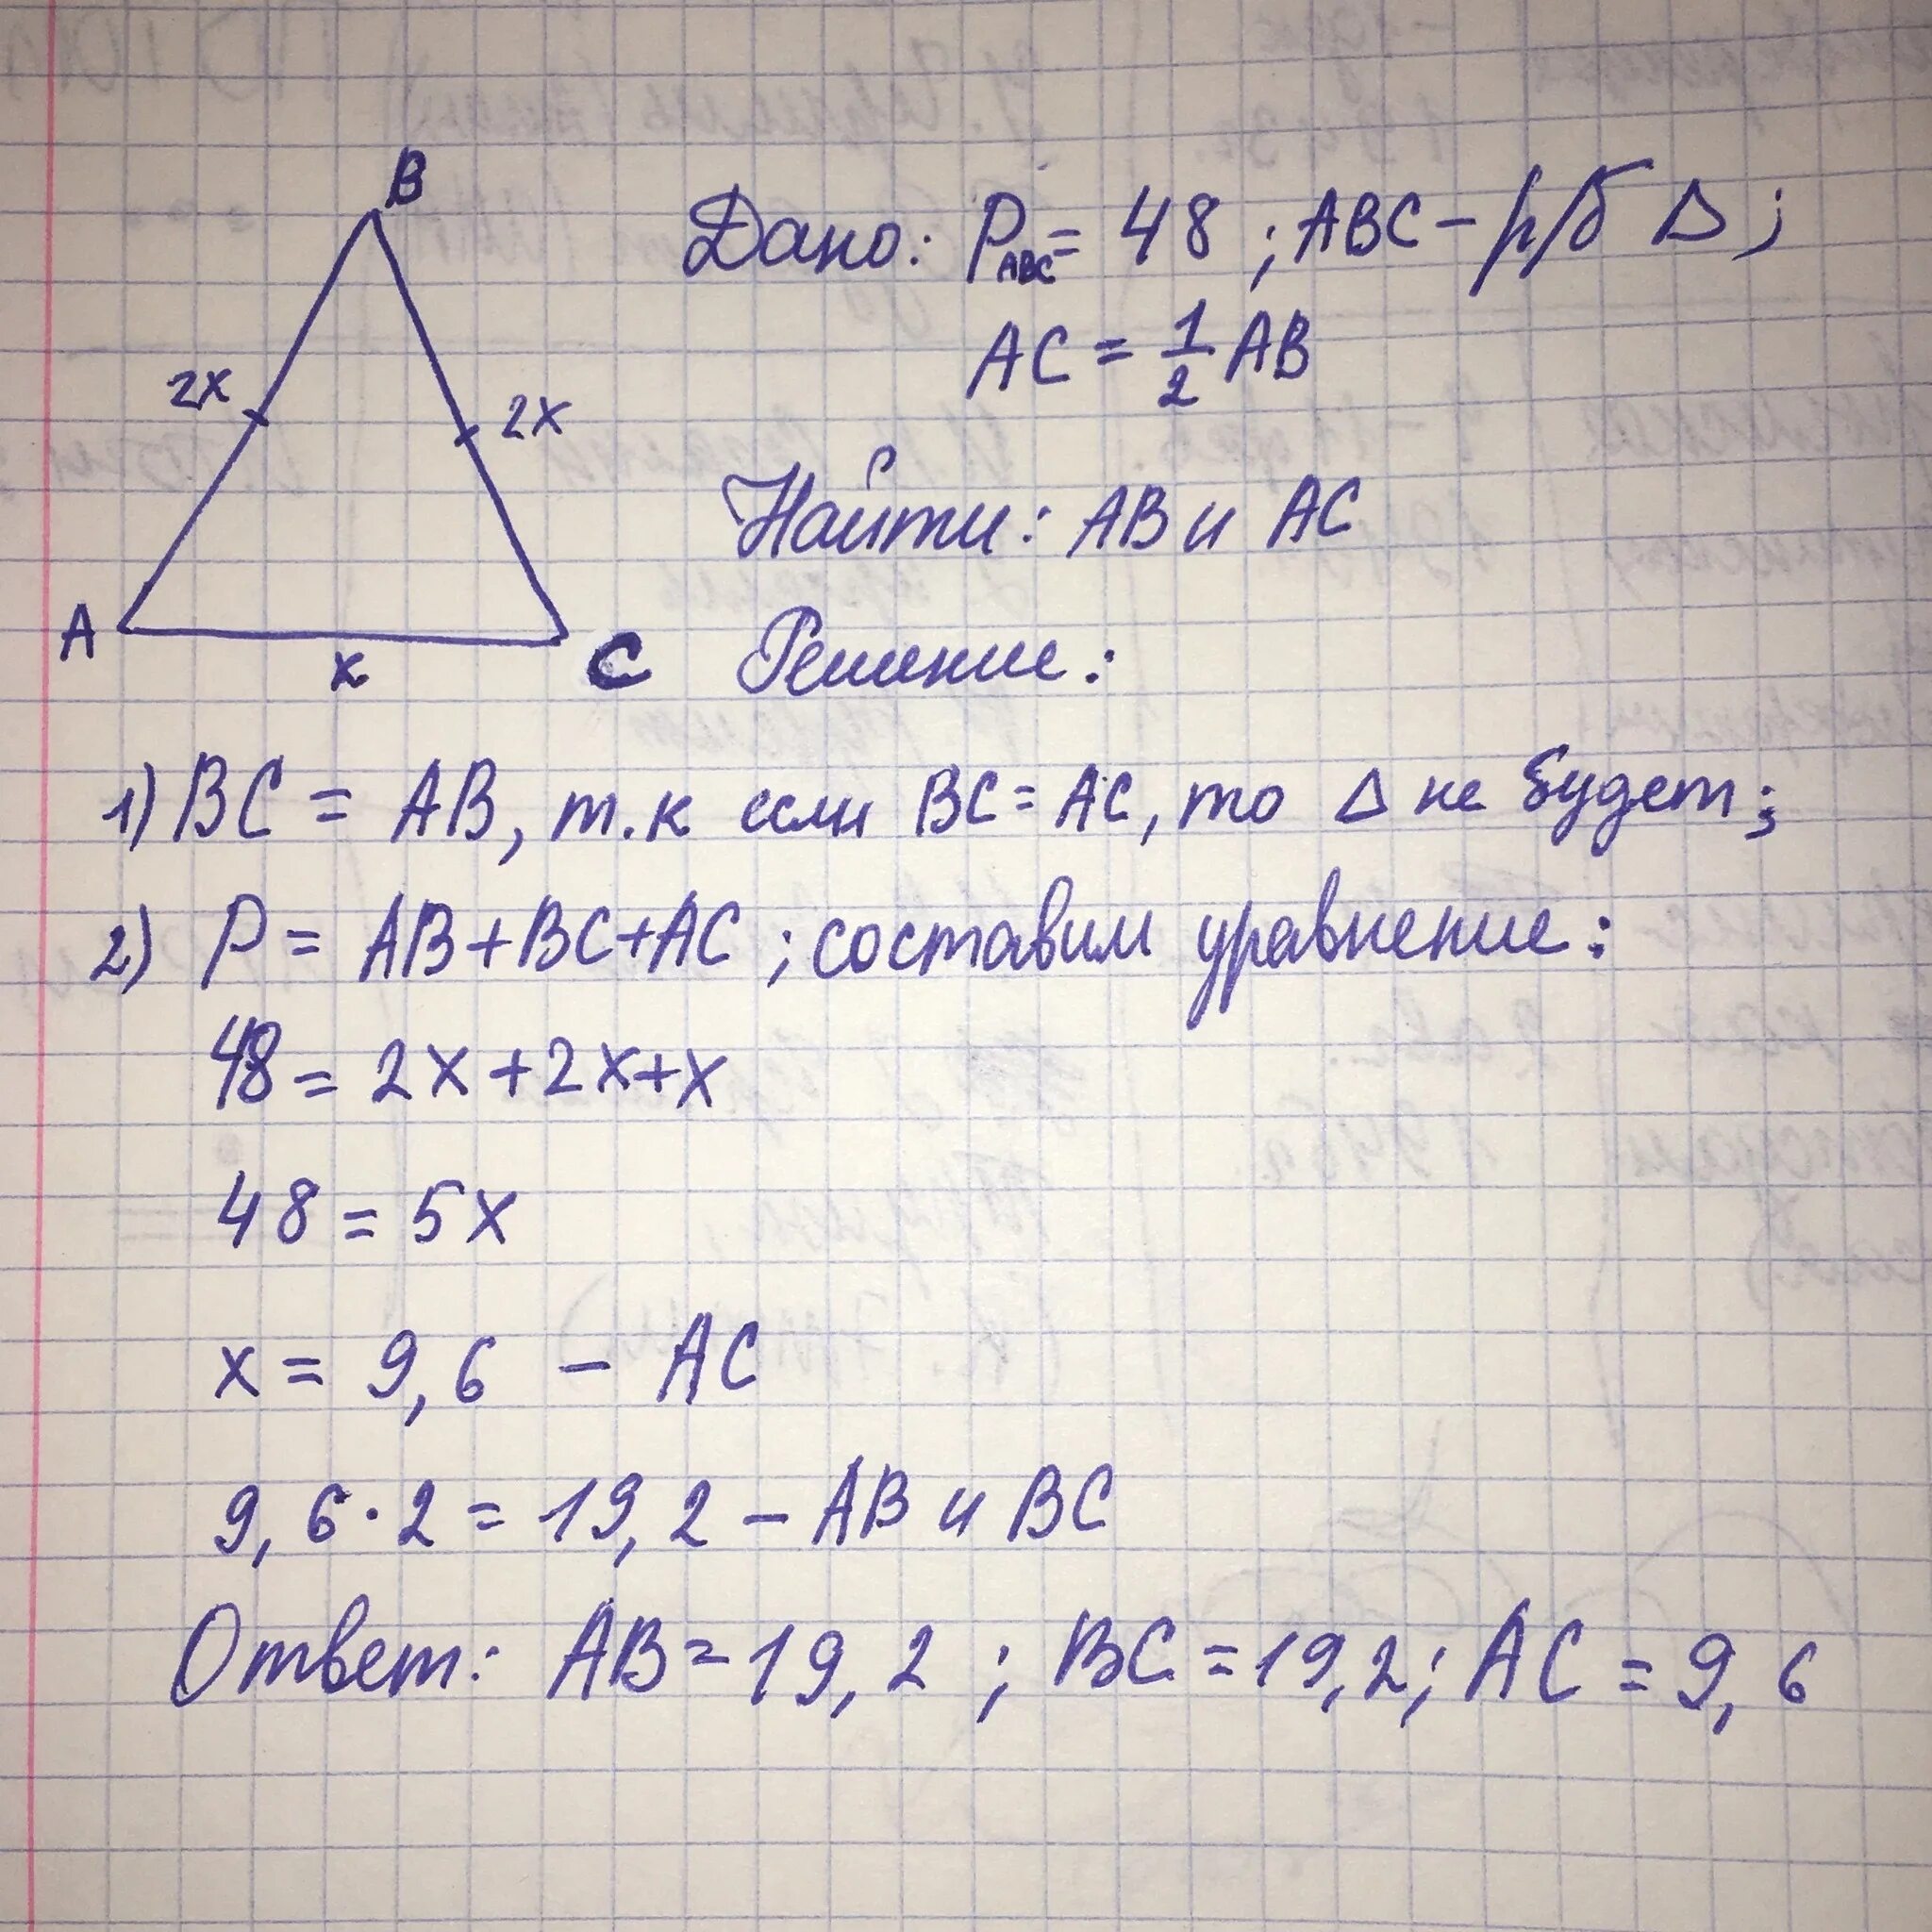 B
Дано: P_ABC = 48 ; ABC – р/б Δ ;
AC = 1/2 AB
2x
2x
Найти: AB и AC
A
x
C
Решение:
1) BC = AB, т.к если BC = AC, то Δ не будет;
2) P = AB+BC+AC ; составим уравнение:
48 = 2x+2x+x
48 = 5x
x = 9,6 – AC
9,6·2 = 19,2 – AB и BC
Ответ: AB = 19,2 ; BC = 19,2; AC = 9,6